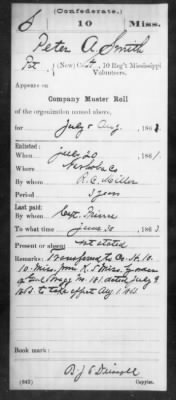 (Confederate.)
6 10 Miss.
Peter A. Smith
Pvt, (New) Co. , 10 Reg't Mississippi
Volunteers.
Appears on
Company Muster Roll
of the organization named above,
for July & Aug, 1863
Enlisted:
When July 20, 1861
Where Neshoba Co
By whom R. C. Miller
Period 3 years
Last paid:
By whom Capt.
To what time June 30, 1863
Present or absent Not stated
Remarks: Transferred to Co. H. 10
10. Miss. from K. 5 Miss. by order
of Genl Bragg No. 181 dated July 9
1863 to take effect Aug 1 1863
Book mark:
(642) Copyist.